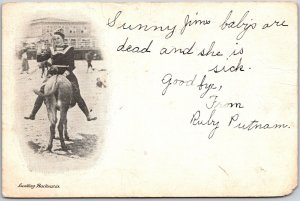 Sunny Jims baby's are
dead and she is
sick.
Good bye,
From
Ruby Putnam.
Looking Backwards